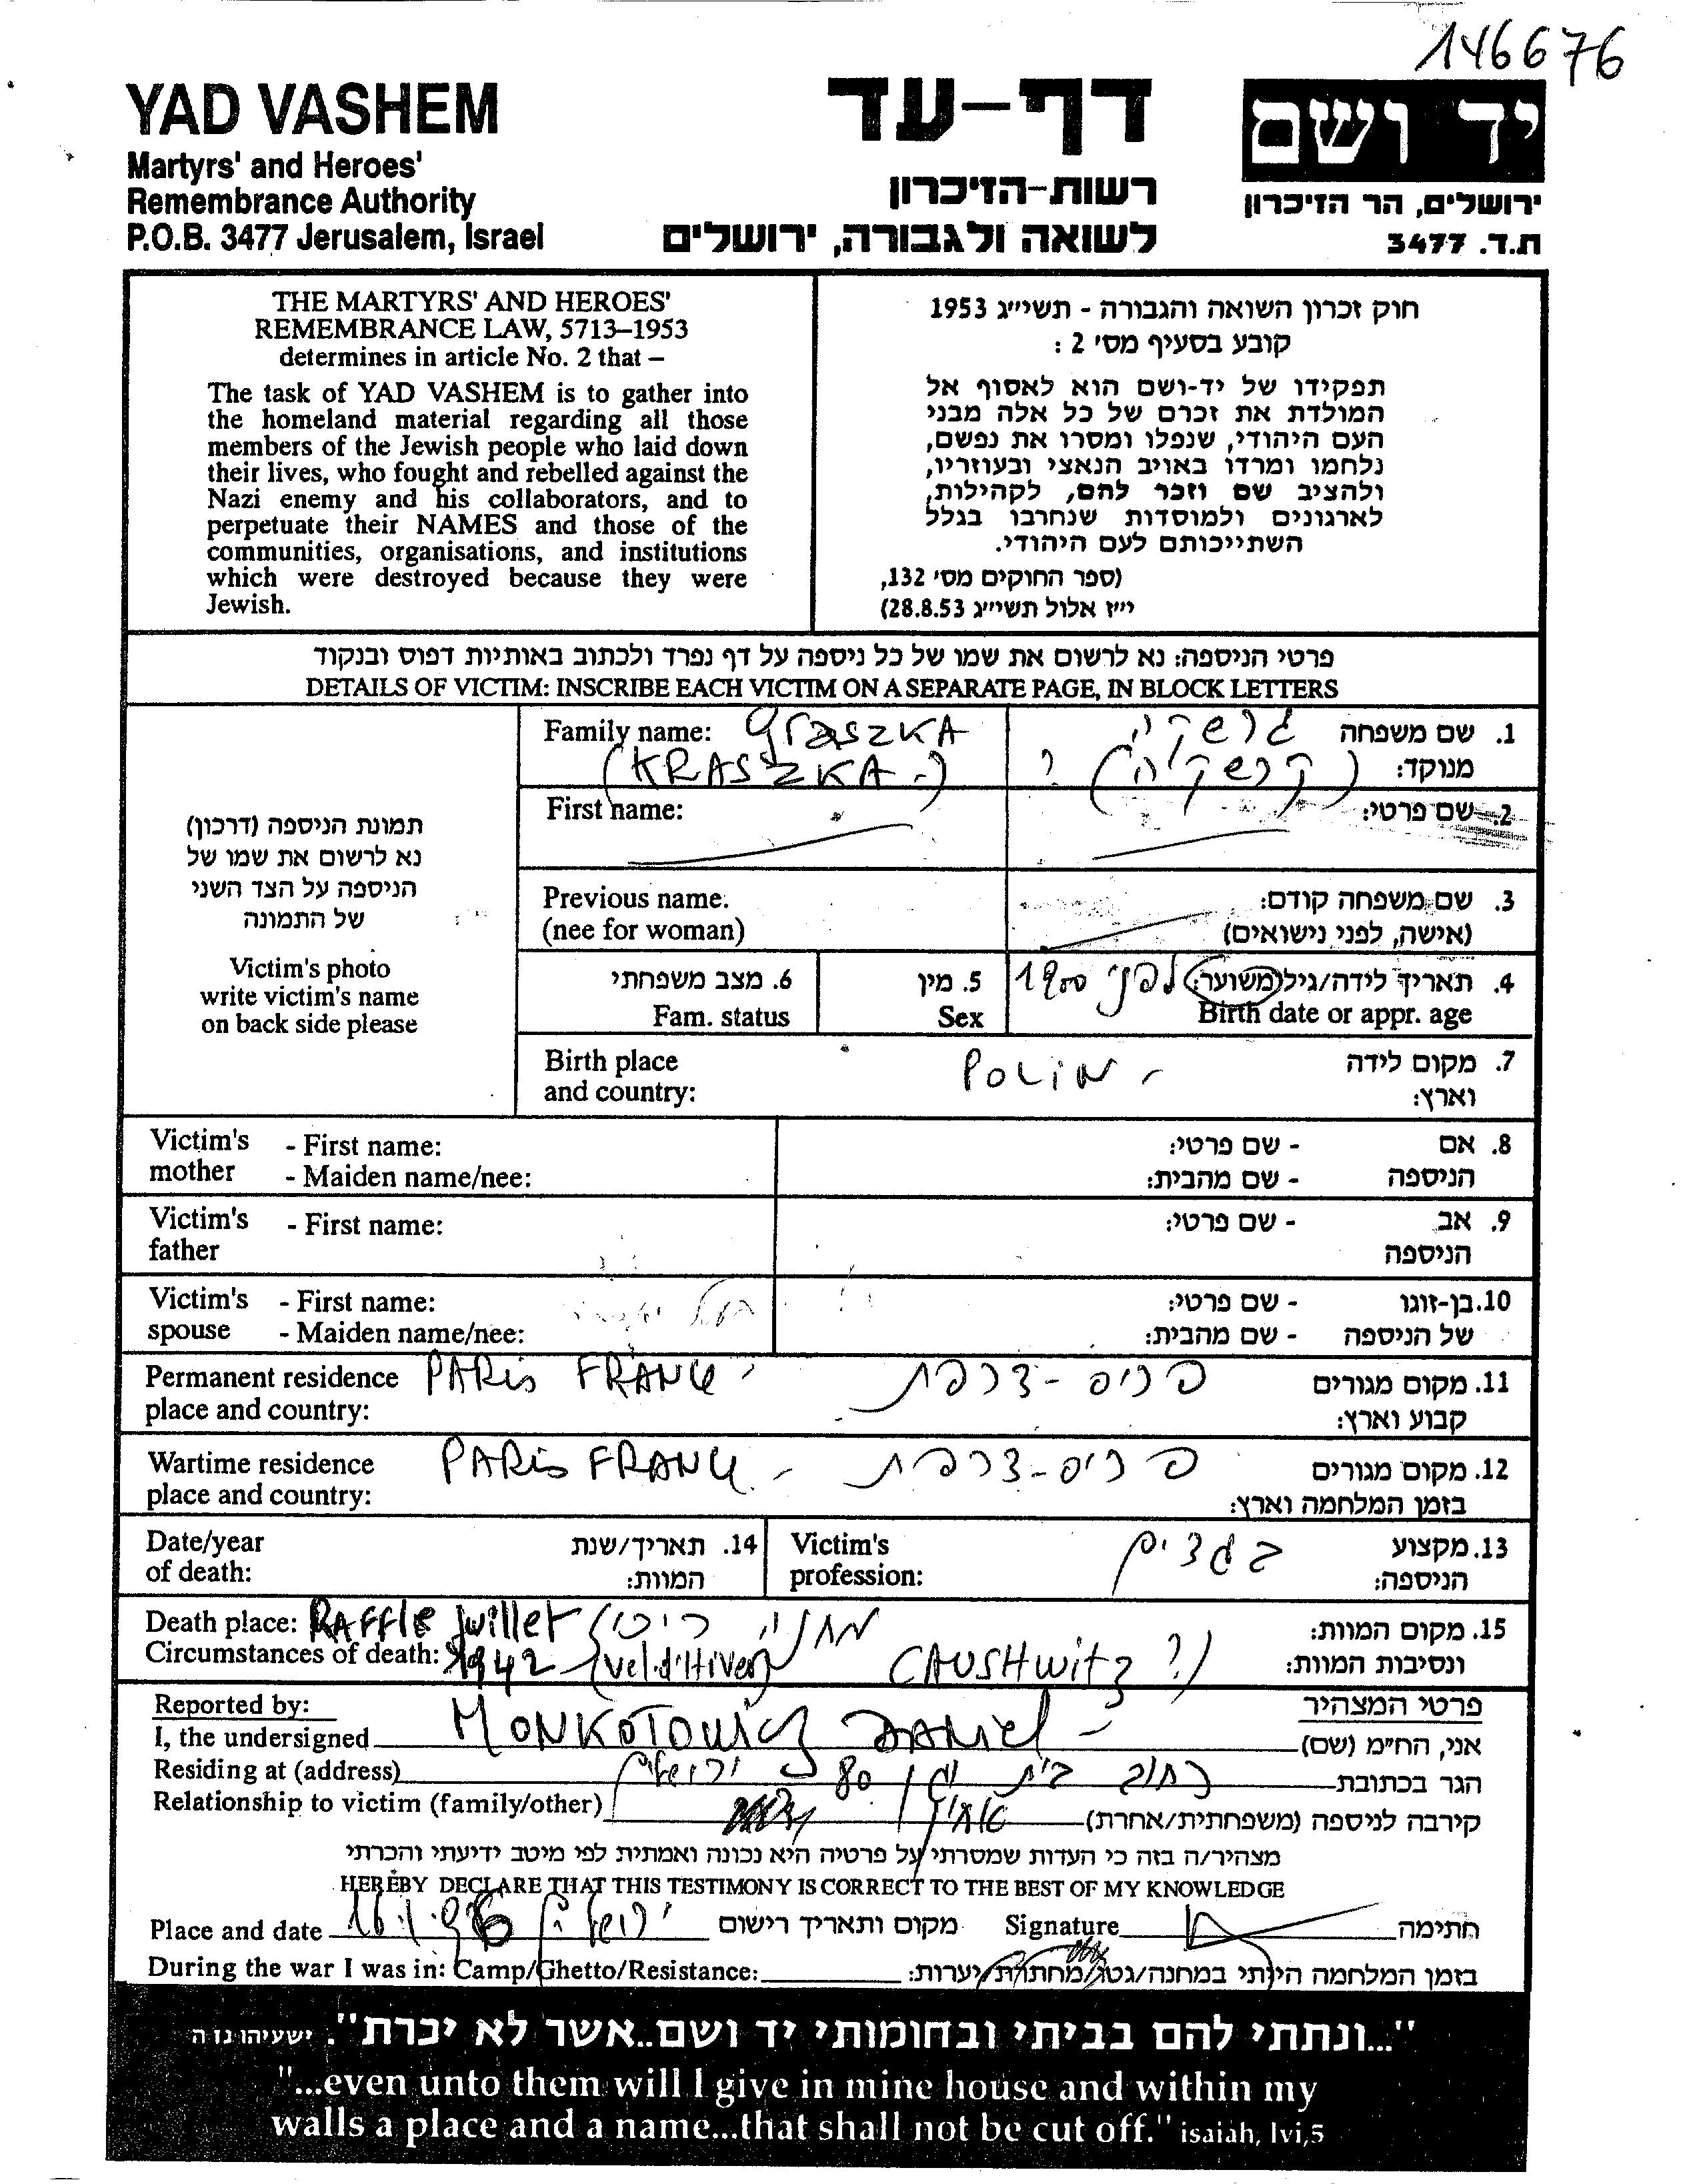 146676
YAD VASHEM
Martyrs' and Heroes'
Remembrance Authority
P.O.B. 3477 Jerusalem, Israel
דף-עד
רשות-הזיכרון
לשואה ולגבורה, ירושלים
יד ושם
ירושלים, הר הזיכרון
ת.ד. 3477
THE MARTYRS' AND HEROES'
REMEMBRANCE LAW, 5713–1953
determines in article No. 2 that –
The task of YAD VASHEM is to gather into
the homeland material regarding all those
members of the Jewish people who laid down
their lives, who fought and rebelled against the
Nazi enemy and his collaborators, and to
perpetuate their NAMES and those of the
communities, organisations, and institutions
which were destroyed because they were
Jewish.
חוק זכרון השואה והגבורה - תשי״ג 1953
קובע בסעיף מס׳ 2 :
תפקידו של יד-ושם הוא לאסוף אל
המולדת את זכרם של כל אלה מבני
העם היהודי, שנפלו ומסרו את נפשם,
נלחמו ומרדו באויב הנאצי ובעוזריו,
ולהציב שם וזכר להם, לקהילות,
לארגונים ולמוסדות שנחרבו בגלל
השתייכותם לעם היהודי.
(ספר החוקים מס׳ 132,
י״ז אלול תשי״ג 28.8.53)
פרטי הניספה: נא לרשום את שמו של כל ניספה על דף נפרד ולכתוב באותיות דפוס ובנקוד
DETAILS OF VICTIM: INSCRIBE EACH VICTIM ON A SEPARATE PAGE, IN BLOCK LETTERS
תמונת הניספה (דרכון)
נא לרשום את שמו של
הניספה על הצד השני
של התמונה
Victim's photo
write victim's name
on back side please
Family name: GRASZKA
(KRASZKA-)
1. שם משפחה גרשקה
מנוקד: (קרשקה) ?
First name:
2. שם פרטי:
Previous name:
(nee for woman)
3. שם משפחה קודם:
(אישה, לפני נישואים)
4. תאריך לידה/גיל משוער: לפני 1900
Birth date or appr. age
5. מין
Sex
6. מצב משפחתי
Fam. status
Birth place
and country:
POLIN -
7. מקום לידה
וארץ:
Victim's - First name:
mother - Maiden name/nee:
8. אם - שם פרטי:
הניספה - שם מהבית:
Victim's - First name:
father
9. אב - שם פרטי:
הניספה
Victim's - First name:
spouse - Maiden name/nee:
10. בן-זוגו - שם פרטי:
של הניספה - שם מהבית:
Permanent residence PARIS FRANCE
place and country:
11. מקום מגורים פריס-צרפת
קבוע וארץ:
Wartime residence PARIS FRANCE -
place and country:
12. מקום מגורים פריס-צרפת
בזמן המלחמה וארץ:
Date/year
of death:
14. תאריך/שנת
המוות:
Victim's
profession:
13. מקצוע בגדים
הניספה:
Death place: RAFFLE Juillet
Circumstances of death: 1942 (Vel.d'Hiver)
15. מקום המוות: מחנה
ונסיבות המוות: (AUSHWITZ ?)
Reported by:
פרטי המצהיר
I, the undersigned MONKOTOWICZ DANIEL - אני, הח״מ (שם)
Residing at (address) רחוב בית וגן 80 ירושלים הגר בכתובת
Relationship to victim (family/other) קירבה לניספה (משפחתית/אחרת)
מצהיר/ה בזה כי העדות שמסרתי על פרטיה היא נכונה ואמתית לפי מיטב ידיעתי והכרתי
HEREBY DECLARE THAT THIS TESTIMONY IS CORRECT TO THE BEST OF MY KNOWLEDGE
Place and date 16.1.96 ירושלים מקום ותאריך רישום Signature חתימה
During the war I was in: Camp/Ghetto/Resistance: בזמן המלחמה הייתי במחנה/גטו/מחתרת/יערות:
"...ונתתי להם בביתי ובחומותי יד ושם..אשר לא יכרת". ישעיהו נו ה
"...even unto them will I give in mine house and within my
walls a place and a name...that shall not be cut off." isaiah, lvi,5